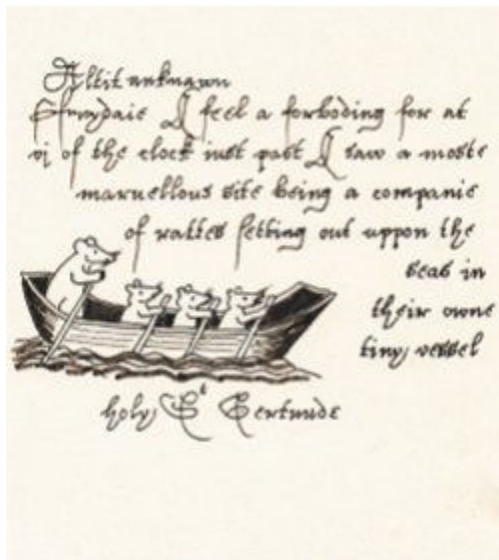 Altit unknawn
Thursdaie I feel a forboding for at
vj of the clock iust past I saw a moste
maruellous site being a companie
of rattes setting out uppon the
seas in
their owne
tiny vessel
holy St Gertrude